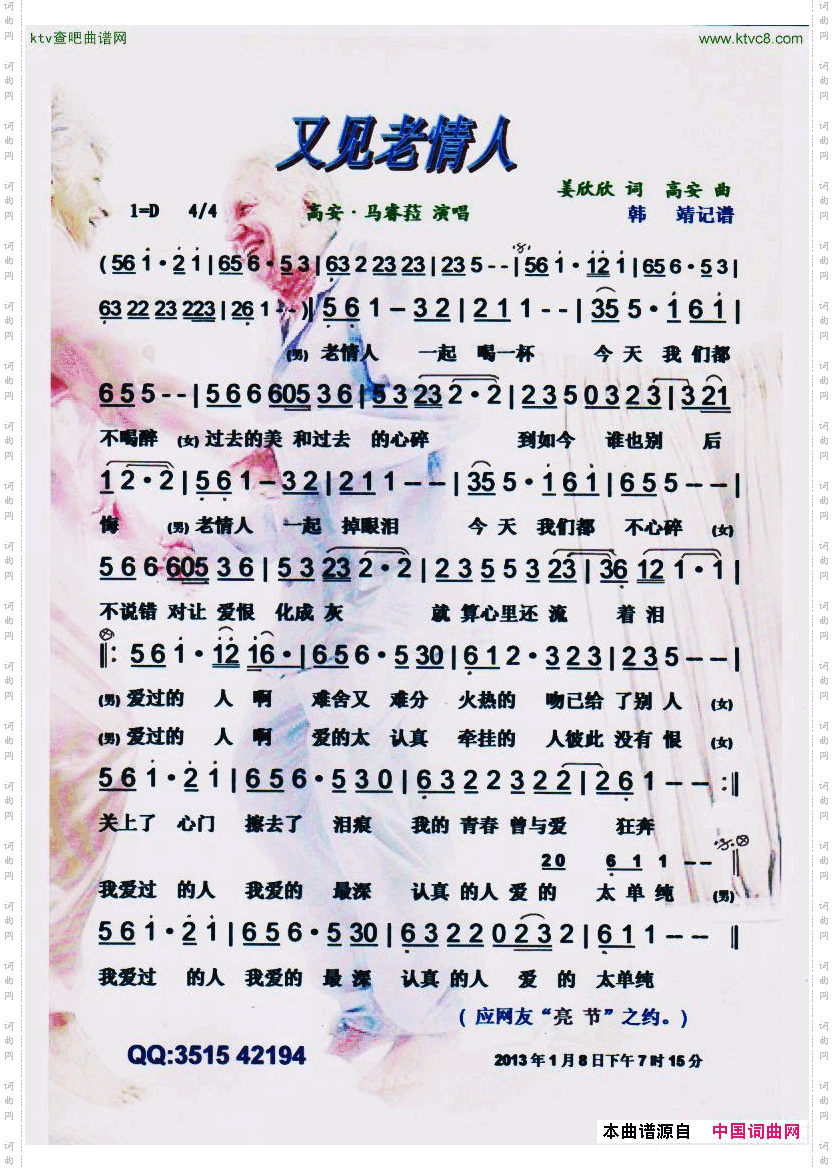 ktv查吧曲谱网 www.ktvc8.com
又见老情人
姜欣欣 词 高安 曲
1=D 4/4 高安·马睿菈 演唱 韩 靖记谱
( 56 1 · 2 1 | 65 6 · 5 3 | 63 2 23 23 | 23 5 - - | 56 1 · 12 1 | 65 6 · 5 3 |
63 22 23 223 | 26 1 - - ) | 5 6 1 – 3 2 | 2 1 1 - - | 35 5 · 1 6 1 |
(男) 老情人 一起 喝一杯 今 天 我 们都
6 5 5 - - | 5 6 6 6 05 3 6 | 5 3 23 2 · 2 | 2 3 5 0 3 2 3 | 3 21
不喝醉 (女) 过去的美 和过去 的心碎 到如今 谁也别 后
1 2 · 2 | 5 6 1 – 3 2 | 2 1 1 - - | 35 5 · 1 6 1 | 6 5 5 – – |
悔 (男) 老情人 一起 掉眼泪 今 天 我们都 不心碎 (女)
5 6 6 6 05 3 6 | 5 3 23 2 · 2 | 2 3 5 5 3 23 | 36 12 1 · 1 |
不说错 对让 爱恨 化成 灰 就 算心里还 流 着 泪
‖: 5 6 1 · 12 16 · | 6 5 6 · 5 30 | 6 1 2 · 3 2 3 | 2 3 5 – – |
(男) 爱过的 人 啊 难舍又 难分 火热的 吻已给 了别 人 (女)
(男) 爱过的 人 啊 爱的太 认真 牵挂的 人彼此 没有 恨 (女)
5 6 1 · 2 1 | 6 5 6 · 5 3 0 | 6 3 2 2 3 2 2 | 2 6 1 – – :‖
关上了 心门 擦去了 泪痕 我的 青春 曾与爱 狂奔
2 0 6 1 1 – – ‖
我爱过 的人 我爱的 最深 认真 的人 爱 的 太 单 纯 (男)
5 6 1 · 2 1 | 6 5 6 · 5 30 | 6 3 2 2 0 2 3 2 | 6 1 1 – – ‖
我爱过 的人 我爱的 最 深 认真 的人 爱 的 太单纯
( 应网友“亮 节”之约。)
QQ:3515 42194 2013 年 1 月 8 日下午 7 时 15 分
本曲谱源自 中国词曲网